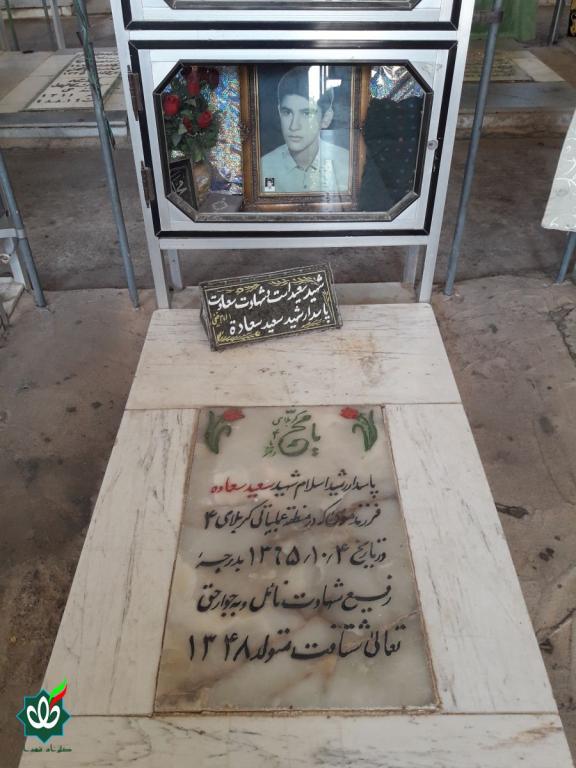 شهید سعید است و شهادت سعادت
پاسدار شهید سعید سعادة
یا محمد
پاسدار رشید اسلام شهید سعید سعاده
فرزند موسی که در منطقه عملیاتی کربلای ۴
در تاریخ ۱۳۶۵/۱۰/۴ بدرجه
رفیع شهادت نائل و به جوار حق
تعالی شتافت متولد ۱۳۴۸
گلزار شهدا